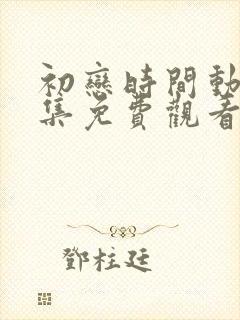 初戀時間動
集免費觀看
鄧柱廷